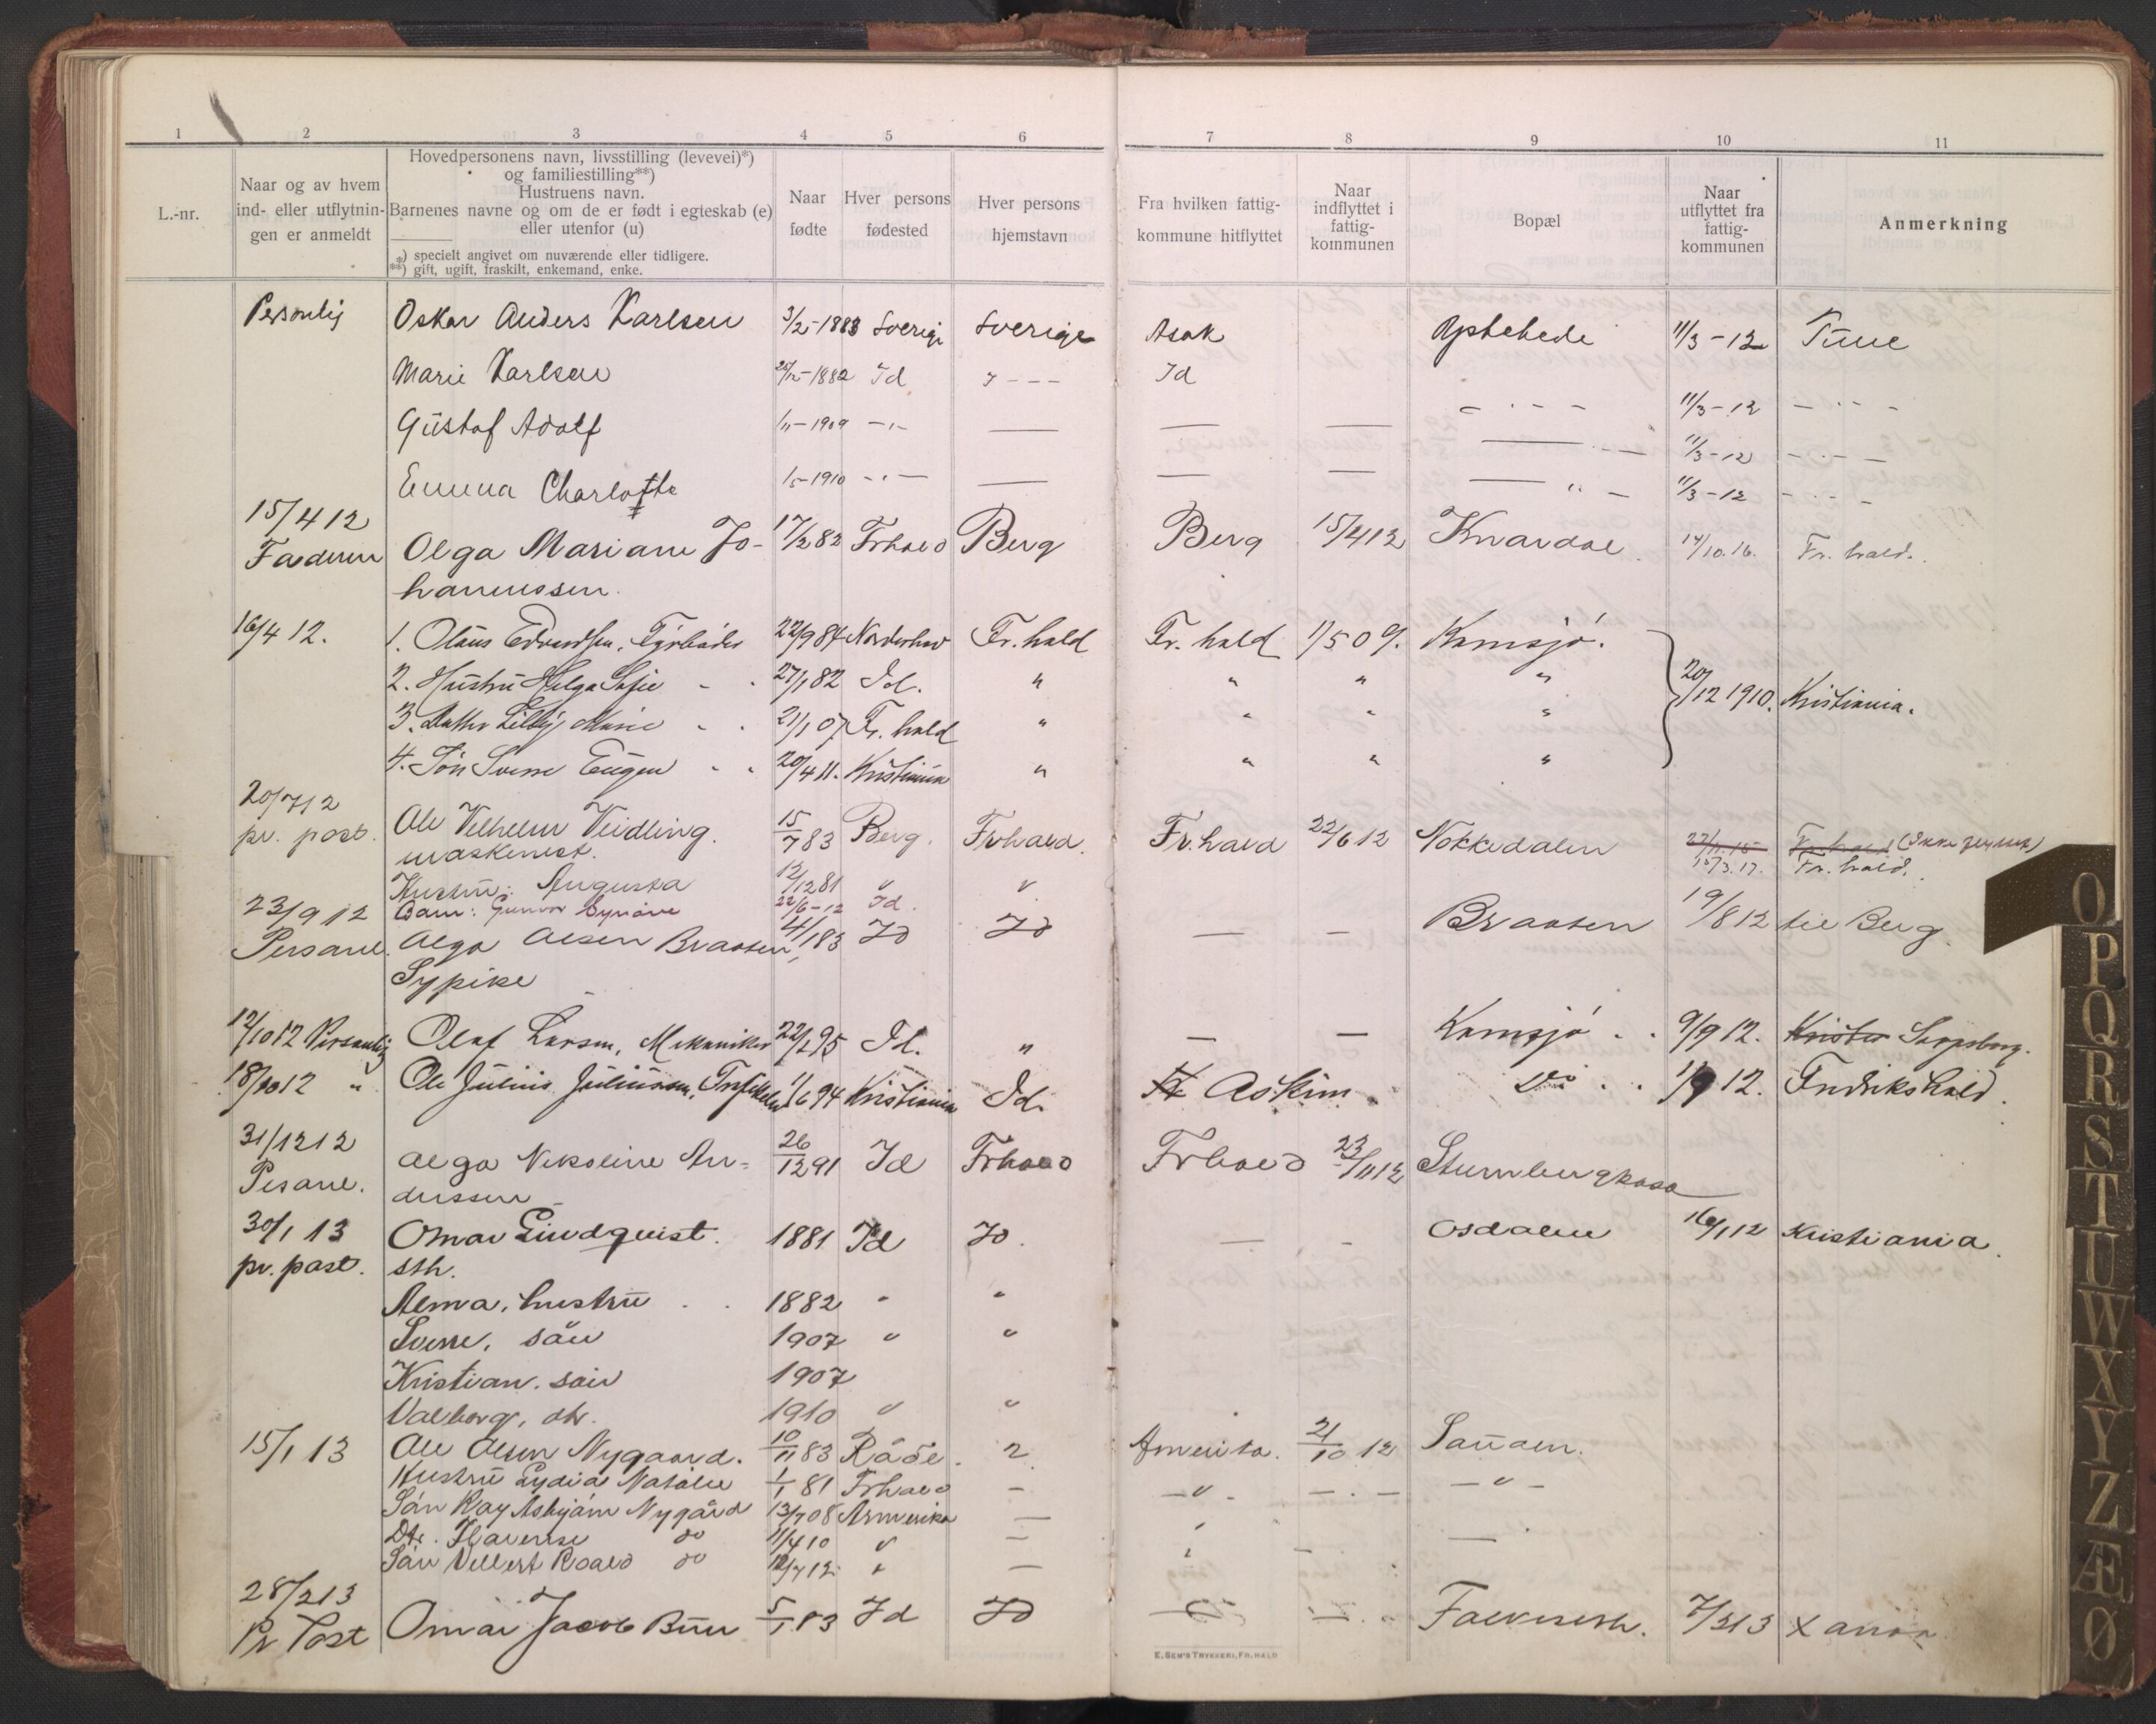 1 2 3 4 5 6 7 8 9 10 11
L.-nr.
Naar og av hvem
ind- eller utflytnin-
gen er anmeldt
Hovedpersonens navn, livsstilling (levevei)*)
og familiestilling**)
Hustruens navn.
Barnenes navne og om de er født i egteskab (e)
eller utenfor (u)
*) specielt angivet om nuværende eller tidligere.
**) gift, ugift, fraskilt, enkemand, enke.
Naar
fødte
Hver persons
fødested
Hver persons
hjemstavn
Fra hvilken fattig-
kommune hitflyttet
Naar
indflyttet i
fattig-
kommunen
Bopæl
Naar
utflyttet fra
fattig-
kommunen
Anmerkning
Personlig Oskar Anders Karlsen 3/2-1883 Sverige Sverige Asak 11/3-12 Tune
Marie Karlsen 1882 Id Id
Gustaf Adolf 1/11-1909 11/3-12
11/3-12
Emma Charlotte 1/5-1910 11/3-12
15/4 12
Faderen Olga Mariane Jo- 17/2 82 Frhald Berg Berg 15/4 12 Knardal 14/10.16. Fr. hald.
hannessen.
16/4 12. 1. Olaus Edvardsen, Fyrbøder 22/9 84 Norderhov Fr. hald Fr. hald 1/5 09. Kornsjø.
2. Hustru Helga Sofie 27/1 82 Id. " " " "
20/12 1910. Kristiania.
3. Datter Lilly Marie 21/1 07 Fr. hald " " " "
4. Søn Sverre Eugen 20/4 11. Kristiania " " " "
20/7 12
pr. post. Ole Vilhelm Veidling. 15/7 83 Berg. Frhald. Fr. hald 22/6 12 Nokkedalen 15/3.17. Fr. hald.
maskinist.
Hustru: Augusta 12/12 81 "
Barn: Gunvor Synøve 22/6-12 Id.
23/9 12
Personl. Olga Olsen Braaten, 4/1 83 Id Id — — Braaten 19/8 12 til Berg.
Sypike
12/10 12 Personlig Olaf Larsen, Mekaniker 22/1 95 Id. " — — Kornsjø 9/9 12. Sarpsborg.
18/10 12 " Ole Julius Juliussen, 1/6 94 Kristiania Id. Askim Do 1/9 12. Fredrikshald.
31/12 12
Personl. Olga Nikoline An- 26/12 91 Id Frhald Frhald 23/11 12
derssen
30/1 13 Omar Lindquist. 1881 Id Id. — — Osdalen 16/1 12 Kristiania.
pr. post. sth.
Alma, hustru 1882 " "
Sverre, søn 1907 " "
Kristian, søn 1907
Valborg, dtr. 1910 " "
15/1 13 Ole Olsen Nygaard. 10/11 83 Råde. Amerika. 21/10 12 Sauøen.
Hustru Lydia Natalie 1/1 81 Frhald
Søn Ray Asbjørn Nygård 13/7 08 Amerika
Dtr. Florense do 11/4 10 "
Søn Villert Roald do 12/7 12 "
28/2 13
Pr Post Omar Jacob Bun 5/1 83 Id Id 7/2 13 Xania
E. SEM'S TRYKKERI, FR.HALD
O
P
Q
R
S
T
U
W
X
Y
Z
Æ
Ø